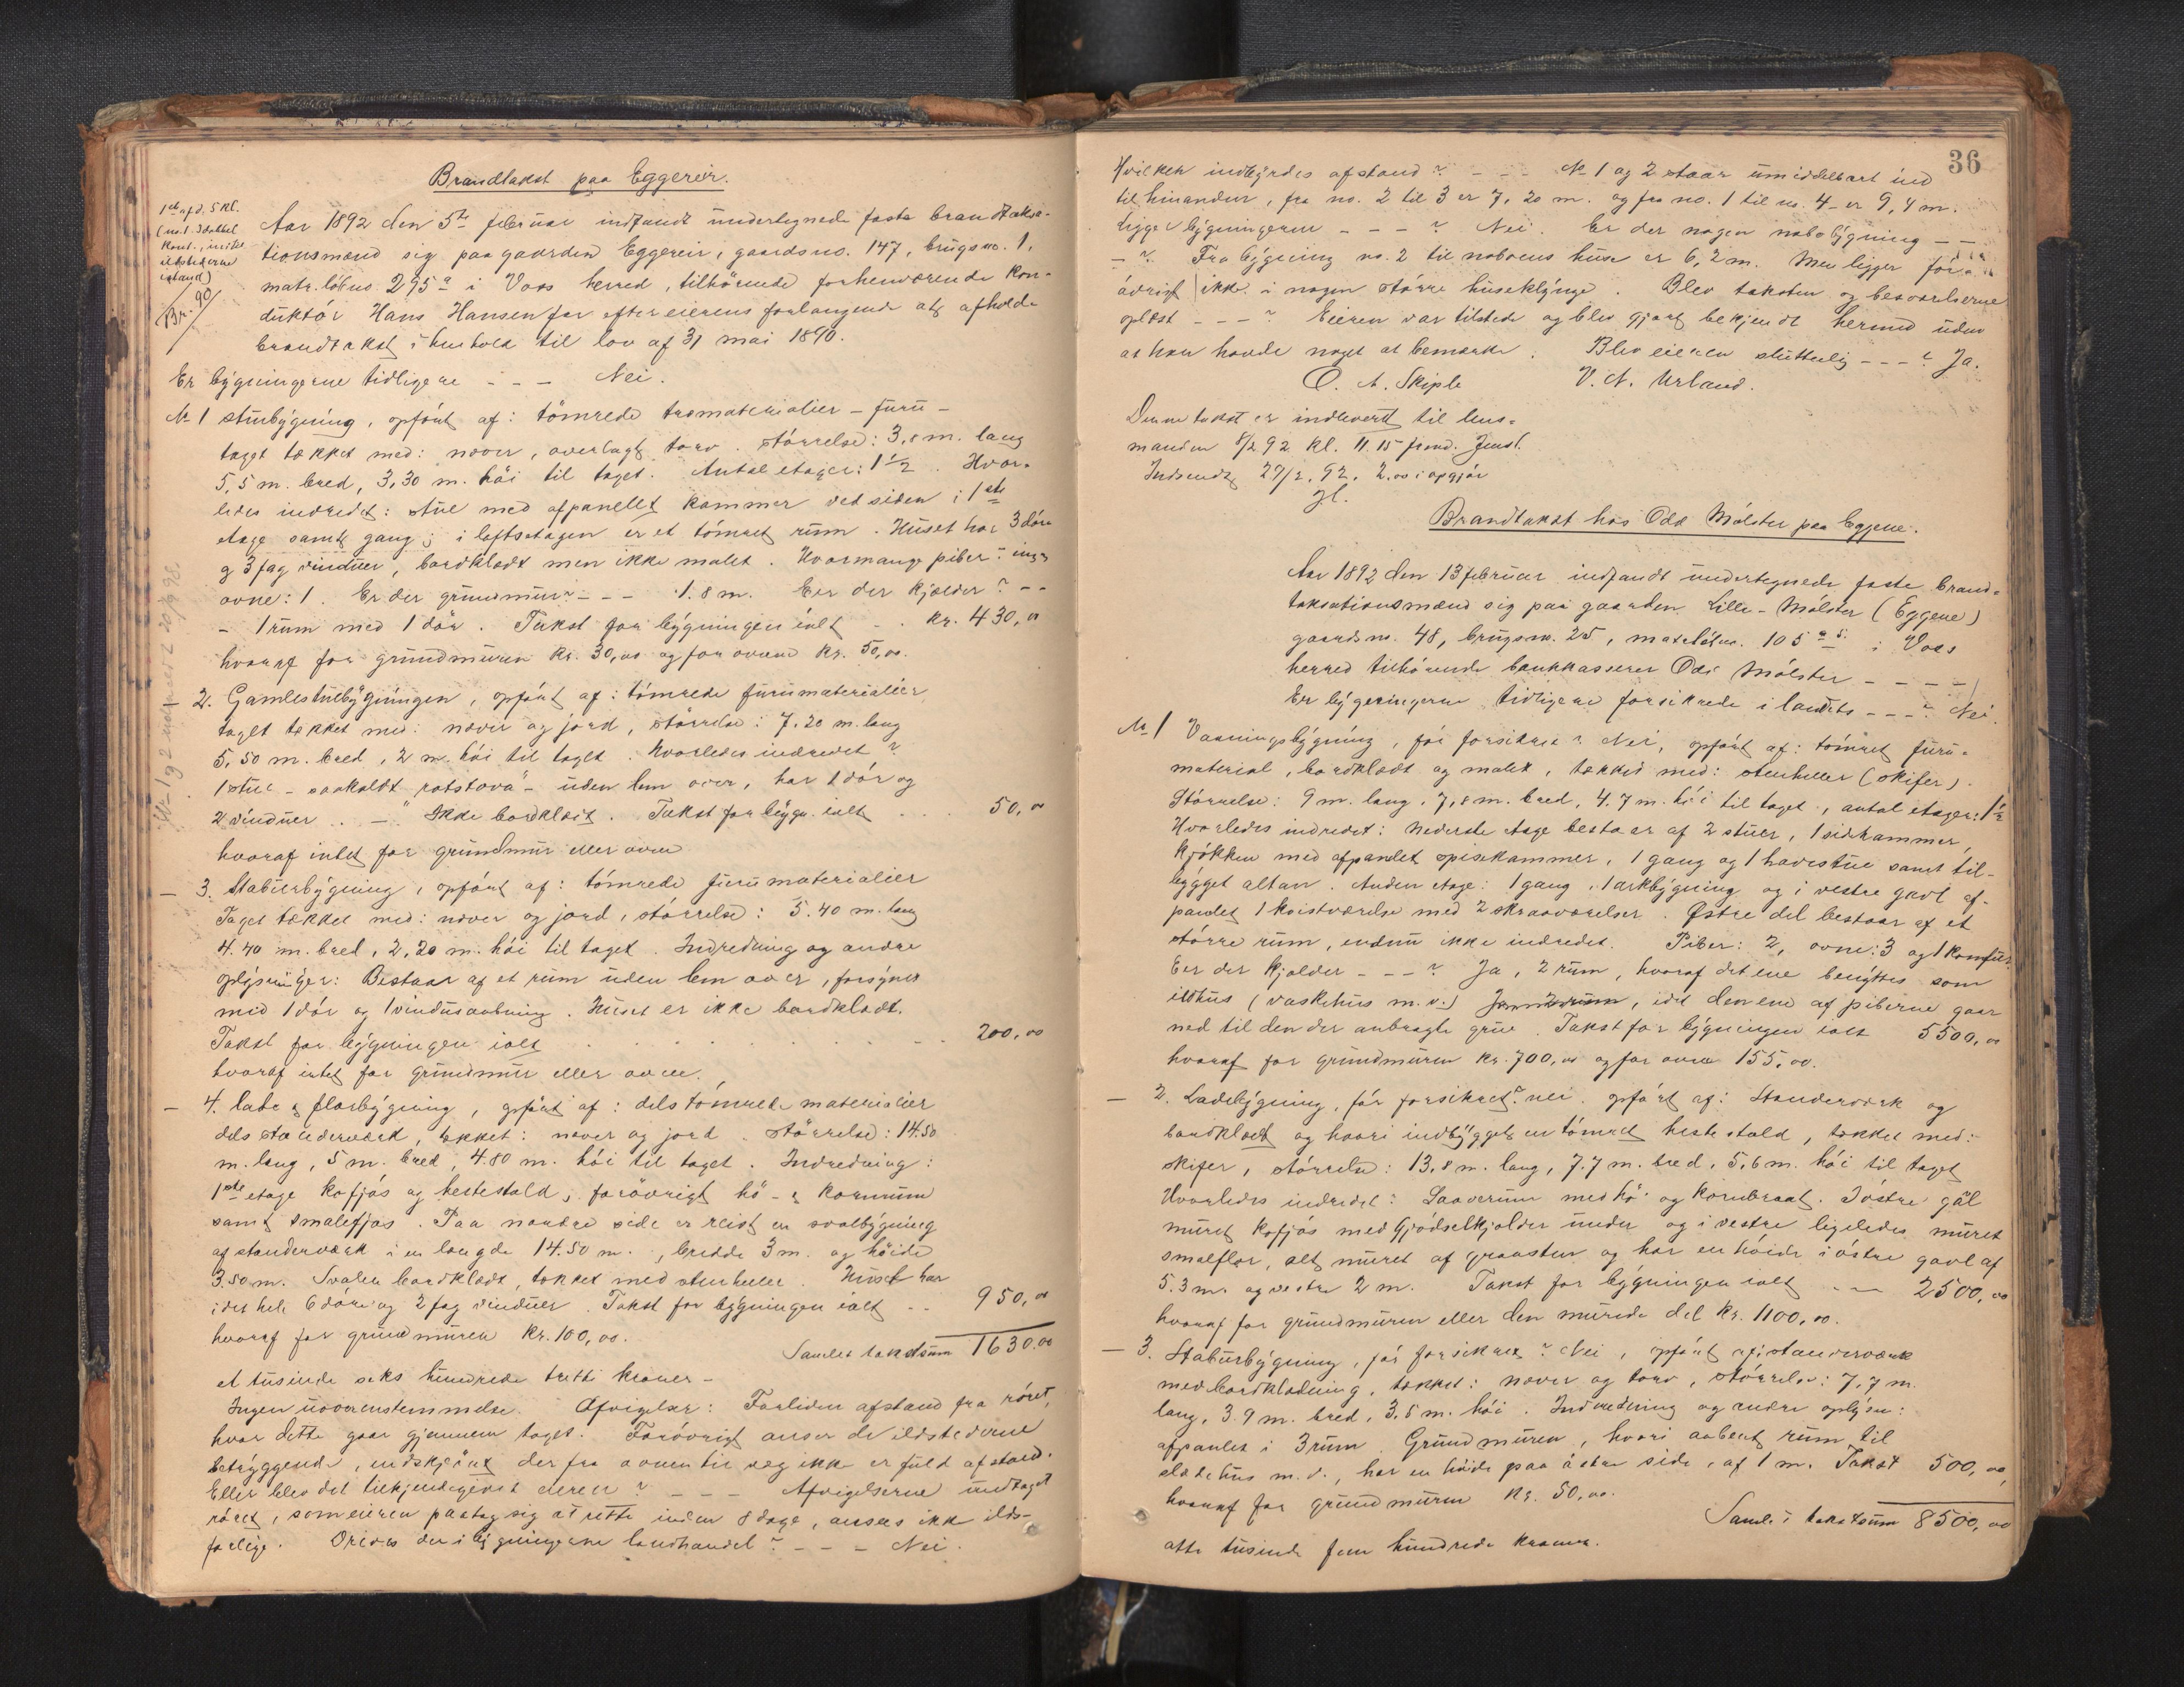 Brandtakst paa Eggereir.
1ste afd. 5 kl.
(no. 1. 3 dobbel
kont., ildstederne
istand)
Br. 90/
Aar 1892 den 5te februar indfandt undertegnede faste brandtaksa-
tionsmænd sig paa gaarden Eggereir, gaardsno. 147, brugsno. 1,
matr. löbno. 295a i Voss herred, tilhörende forhenværende kon-
duktör Hans Hansen for efter eierens forlangende at afholde
brandtakst i henhold til lov af 31 mai 1890.
Er bygningerne tidligere - - - Nei.
No 1 stuebygning, opfört af: tömrede træmaterialier - furu -
taget tækket med: næver, overlagt torv. Störrelse: 3,8 m. lang
5,5 m. bred, 3,30 m. höi til taget. Antal etager: 1 1/2. Hvor-
ledes indredet: stue med afpanellet kammer ved siden i 1ste
etage samt gang; i loftsetagen er et tömret rum. Huset har 3 döre
og 3 fag vinduer, bordklædt men ikke malet. Hvormange piber: ingen
ovne: 1. Er der grundmur? - - - 1.8 m. Er der kjælder? - -
- 1 rum med 1 dör. Takst for bygningen ialt . . kr. 430,00
hvoraf for grundmuren kr. 30,00 og for ovnen kr. 50,00.
- 2. Gamlestuebygningen, opfört af: tömrede furumaterialier
taget tækket med: næver og jord, störrelse: 7.20 m. lang
5,50 m. bred, 2 m. höi til taget. Hvorledes indredet?
1 stue - saakaldt "rotstova" - uden lem over, har 1 dör og
2 vinduer . . - . Ikke bordklædt. Takst for bygn. ialt . . . 50,00
hvoraf intet for grundmur eller ovne
- 3. Stabursbygning, opfört af: tömrede furumaterialier
Taget tækket med: næver og jord, störrelse: 5.40 m. lang
4.40 m. bred, 2,20 m. höi til taget. Indredning og andre
oplysninger: Bestaar af et rum uden lem over, forsynet
med 1 dör og 1 vinduaabning. Huset er ikke bordklædt.
Takst for bygningen ialt . . . . . . . . . 200,00
hvoraf intet for grundmur eller ovne.
- 4. Lade & florbygning, opfört af: dels tömrede materialier
dels stænderværk, tækket: næver og jord. Störrelse: 14.50
m. lang, 5 m. bred, 4.80 m. höi til taget. Indredning:
1ste etage kofjös og hestestald; forövrigt hö- & kornrum
samt smalefjös. Paa nordre side er reist en svalbygning
af stænderværk i en længde 14.50 m., bredde 3 m. og höide
3.50 m. Svalen bordklædt, tækket med stenheller. Huset har
i det hele 6 döre og 2 fag vinduer. Takst for bygningen ialt . . 950,00
hvoraf for grundmuren kr. 100,00.
Samlet takstsum 1630.00
et tusinde seks hundrede tretti kroner -
Ingen uoverensstemmelse. Afvigelser: Forliden afstand fra röret,
hvor dette gaar gjennem taget. Forövrigt anser de ildstederne
betryggende, endskjönt der fra ovnen til væg ikke er fuld afstand.
Eller blev det tilkjendegivet eieren? - - - Afvigelserne undtaget
röret, som eieren paatog sig at rette inden 8 dage, ansees ikke ilds-
farlige. Drives der i bygningerne landhandel? - - - Nei.
No 1 og 2 20/9 92
36
Hvilken indbyrdes afstand? - - - No 1 og 2 staar umiddelbart ind
til hinanden, fra no. 2 til 3 er 7,20 m. og fra no. 1 til no. 4 - er 9,4 m.
Ligger bygningerne - - - ? Nei. Er der nogen nabobygning - -
- ? Fra bygning no. 2 til naboens huse er 6,2 m. Men ligger for-
övrigt ikke i nogen större huseklynge. Blev taksten og besvarelserne
oplæst - - - ? Eieren var tilstede og blev gjort bekjendt hermed uden
at han havde noget at bemærke. Blev eieren sluttelig - - - ? Ja.
O. A. Skiple V. N. Urland.
Denne takst er indleveret til lens-
manden 8/2 92 kl. 11.15 formd.
Indsendt 29/2. 92. 2.00 i opgjör
Brandtakst hos Odd Mölster paa Eggene.
Aar 1892 den 13 februar indfandt undertegnede faste brand-
taksationsmænd sig paa gaarden Lille-Mölster (Eggene)
gaardsno. 48, brugsno. 25, matr. löbno. 105 a 5. i Voss
herred tilhörende bankkasserer Odd Mölster - - - -
Er bygningerne tidligere forsikrede i landets - - - ? Nei.
No 1 Vaaningsbygning, för forsikret? Nei, opfört af: tömret furu-
material, bordklædt og malet, tækket med: stenheller (skifer).
Störrelse: 9 m. lang, 7,8 m. bred, 4.7 m. höi til taget, antal etager: 1 1/2
Hvorledes indredet: Nederste etage bestaar af 2 stuer, 1 sidekammer,
kjökken med afpanelet spisekammer, 1 gang og 1 havestue samt til-
bygget altan. Anden etage: 1 gang, 1 arkbygning og i vestre gavl af-
panelet 1 kvistværelse med 2 skraaværelser. Östre del bestaar af et
större rum, endnu ikke indredet. Piber: 2, ovne: 3 og 1 komfur.
Eer der kjælder - - - ? Ja, 2 rum, hvoraf det ene benyttes som
ildhus (vaskehus m. v.), idet den ene af piberne gaar
ned til den der anbragte grue. Takst for bygningen ialt 5500,00
hvoraf for grundmuren kr. 700,00 og for ovne 155,00.
- 2. Ladebygning, för forsikret? nei. opfört af: stænderværk og
bordklædt og hvori indbygget en tömret hestestald, tækket med:
skifer, störrelse: 13,8 m. lang, 7.7 m. bred, 5,6 m. höi til taget
Hvorledes indredet: Laaverum med hö- og kornbraat. I östre gavl
muret kofjös med gjödselkjælder under og i vestre ligeledes muret
smalflor, alt muret af graasten og har en höide i östre gavl af
5.3 m. og vestre 2 m. Takst for bygningen ialt - - - 2500,00
hvoraf for grundmuren eller den murede del kr. 1100,00.
- 3. Stabursbygning, för forsikret? Nei, opfört af: stænderværk
med bordklædning, tækket: næver og torv, störrelse: 7,7 m.
lang, 3.9 m. bred, 3,5 m. höi. Indredning og andre oplysn:
afpanlet i 3 rum. Grundmuren, hvori aabent rum til
slædehus m. v., har en höide paa östre side, af 1 m. Takst 500,00,
hvoraf for grundmuren kr. 50,00.
Samlet takstsum 8500,00
otte tusinde fem hundrede kroner.